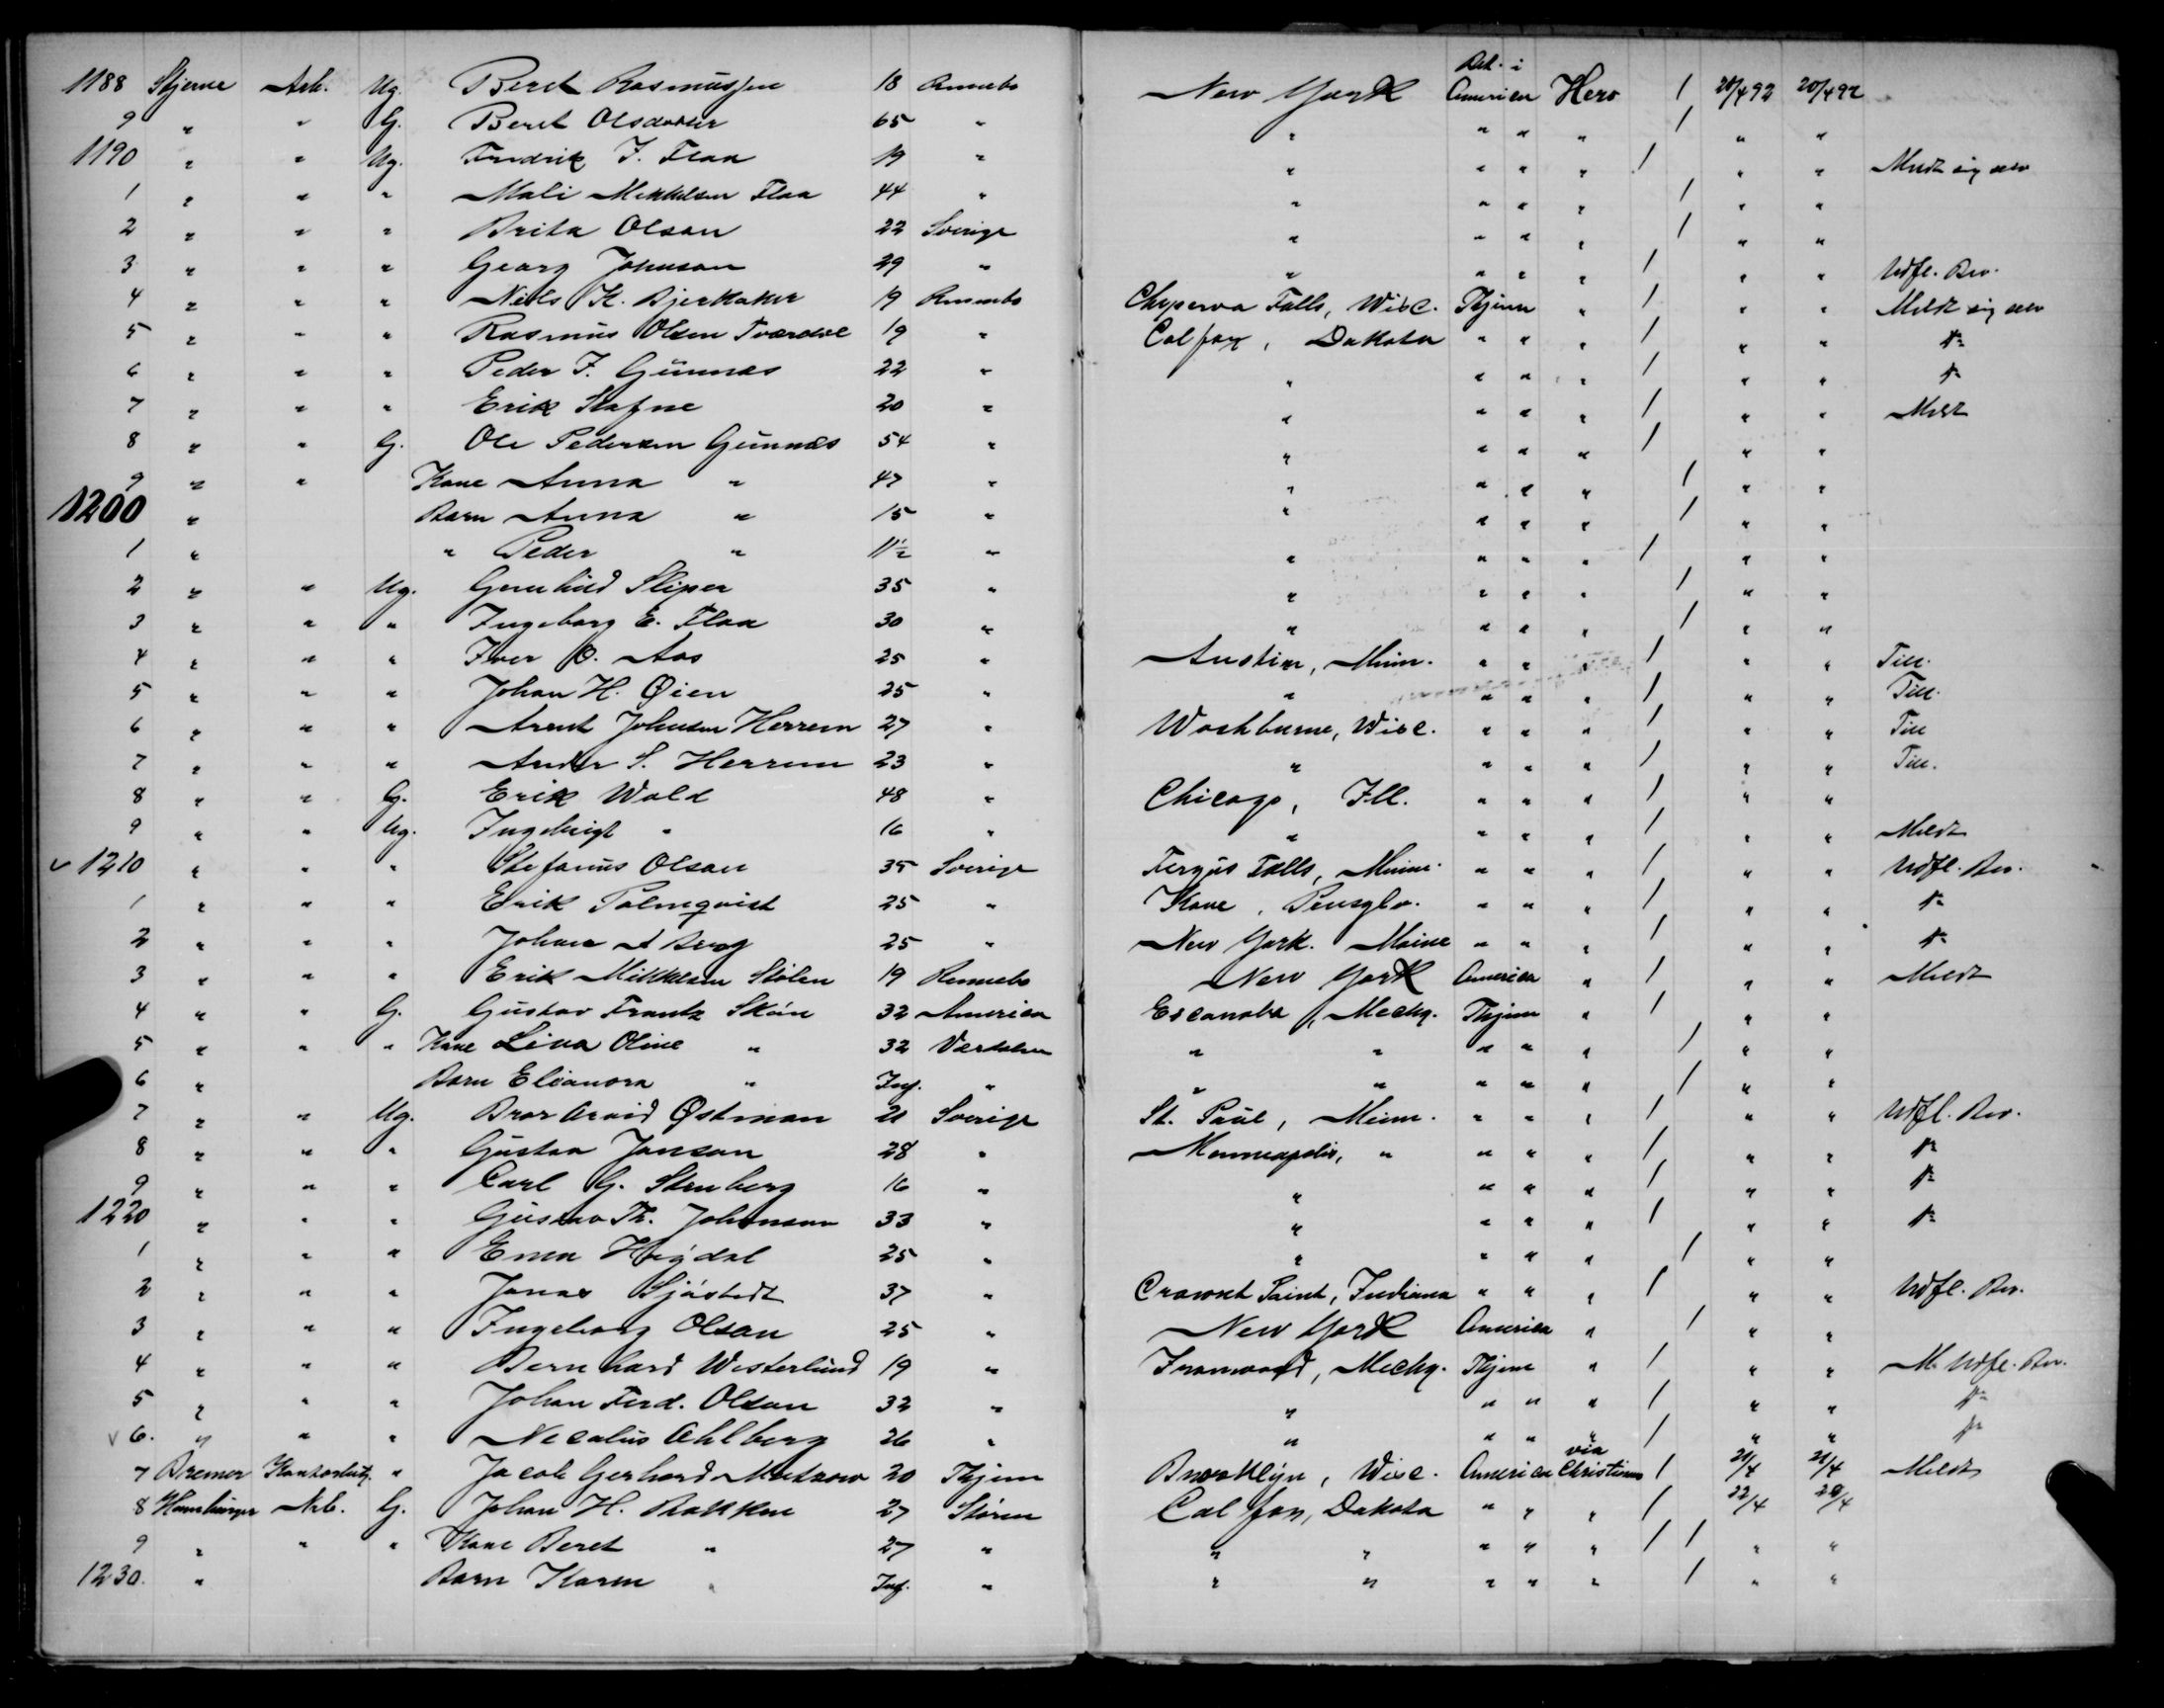 Bet. i
1188 Stjerne Arb. Ug. Beret Rasmussen 18 Rennebo New York America Hero / 20/4 92 20/4 92
9 " " G. Beret Olsdatter 65 " " " " " / " "
1190 " " Ug. Fredrik J. Flaa 19 " " " " " / " " Meldt sig selv
1 " " " Mali Mikkelsen Flaa 44 " " " " " / " "
2 " " " Brita Olsen 22 Sverige " " " " / " "
3 " " " Georg Johnson 29 " " " " " / " " Udfl. Bev.
4 " " " Nils K. Bjerkaker 19 Rennebo Chyperva Falls, Wisc. Thjem " / " " Meldt sig selv
5 " " " Rasmus Olsen Tværdal 19 " Colfax, Dakota " " " / " "
6 " " " Peder J. Gunnes 22 " " " " " / " "
7 " " " Erik Stafne 20 " " " " " / " " Meldt
8 " " G. Ole Pedersen Gunnæs 54 " " " " " / " "
9 " " Kone Anna " 47 " " " " " / " "
1200 " Barn Anna " 15 " " " " " / " "
1 " " Peder " 11½ " " " " " / " "
2 " " Ug. Gunhild Sliper 35 " " " " " / " "
3 " " " Ingeborg E. Flaa 30 " " " " " / " "
4 " " " Iver O. Aas 25 " Austin, Minn. " " " / " " Till.
5 " " " Johan H. Øien 25 " " " " " / " " Till.
6 " " " Arent Johnsen Herrem 27 " Washburne, Wisc. " " " / " " Till
7 " " " Ander S. Herrem 23 " " " " " / " " Till.
8 " " G. Erik Wold 48 " Chicago, Ill. " " " / " "
9 " " Ug. Ingebrigt " 16 " " " " " / " " Meldt
1210 " " " Stefanus Olson 35 Sverige Fergus Falls, Minn. " " " / " " Udfl. Bev.
1 " " " Erik Palmqvist 25 " Kane, Pensylv. " " " / " "
2 " " " Johan A Berg 25 " New York. Maine " " " / " "
3 " " " Erik Mikkelsen Stølen 19 Rennebo New York America " / " " Meldt
4 " " G. Gustav Frantz Skøn 32 America Escanaba, Mechg. Thjem " / " "
5 " " " Kone Lina Oline " 32 Værdalen " " " " " / " "
6 " Barn Elianora " Inf. " " " " " " / " "
7 " " Ug. Bror Arvid Østman 21 Sverige St. Paul, Minn. " " " / " " Udfl. Bev.
8 " " " Gustaa Janson 28 " Menneapolis, " " " " / " "
9 " " " Carl G. Stenberg 16 " " " " " / " "
1220 " " " Gustav Th. Johanson 33 " " " " " / " "
1 " " " Emma Høgdal 25 " " " " " / " "
2 " " " Jonas Sjøstedt 37 " Crawnt Paint, Indiana " " " / " " Udfl. Bev.
3 " " " Ingeborg Olson 25 " New York America " / " "
4 " " " Bernhard Westerlund 19 " Ironwood, Mechg. Thjem " / " " M. Udfl. Bev.
5 " " " Johan Ferd. Olson 32 " " " " " / " "
6. " " " Necalus Ahlberg 26 " " " " " / " "
7 Bremer Kontorbetj. " Jacob Gerhard 20 Thjem Brooklyn, Wisc. America via Christiania / 21/4 21/4 Meldt
8 Hamburger Arb. G. Johan H. Rokkne 27 Støren Colfax, Dakota " " " / 22/4 22/4
9 " " " Kone Beret " 27 " " " " " " / / " "
1230. " Barn Karen " Inf. " " " " " " / " "